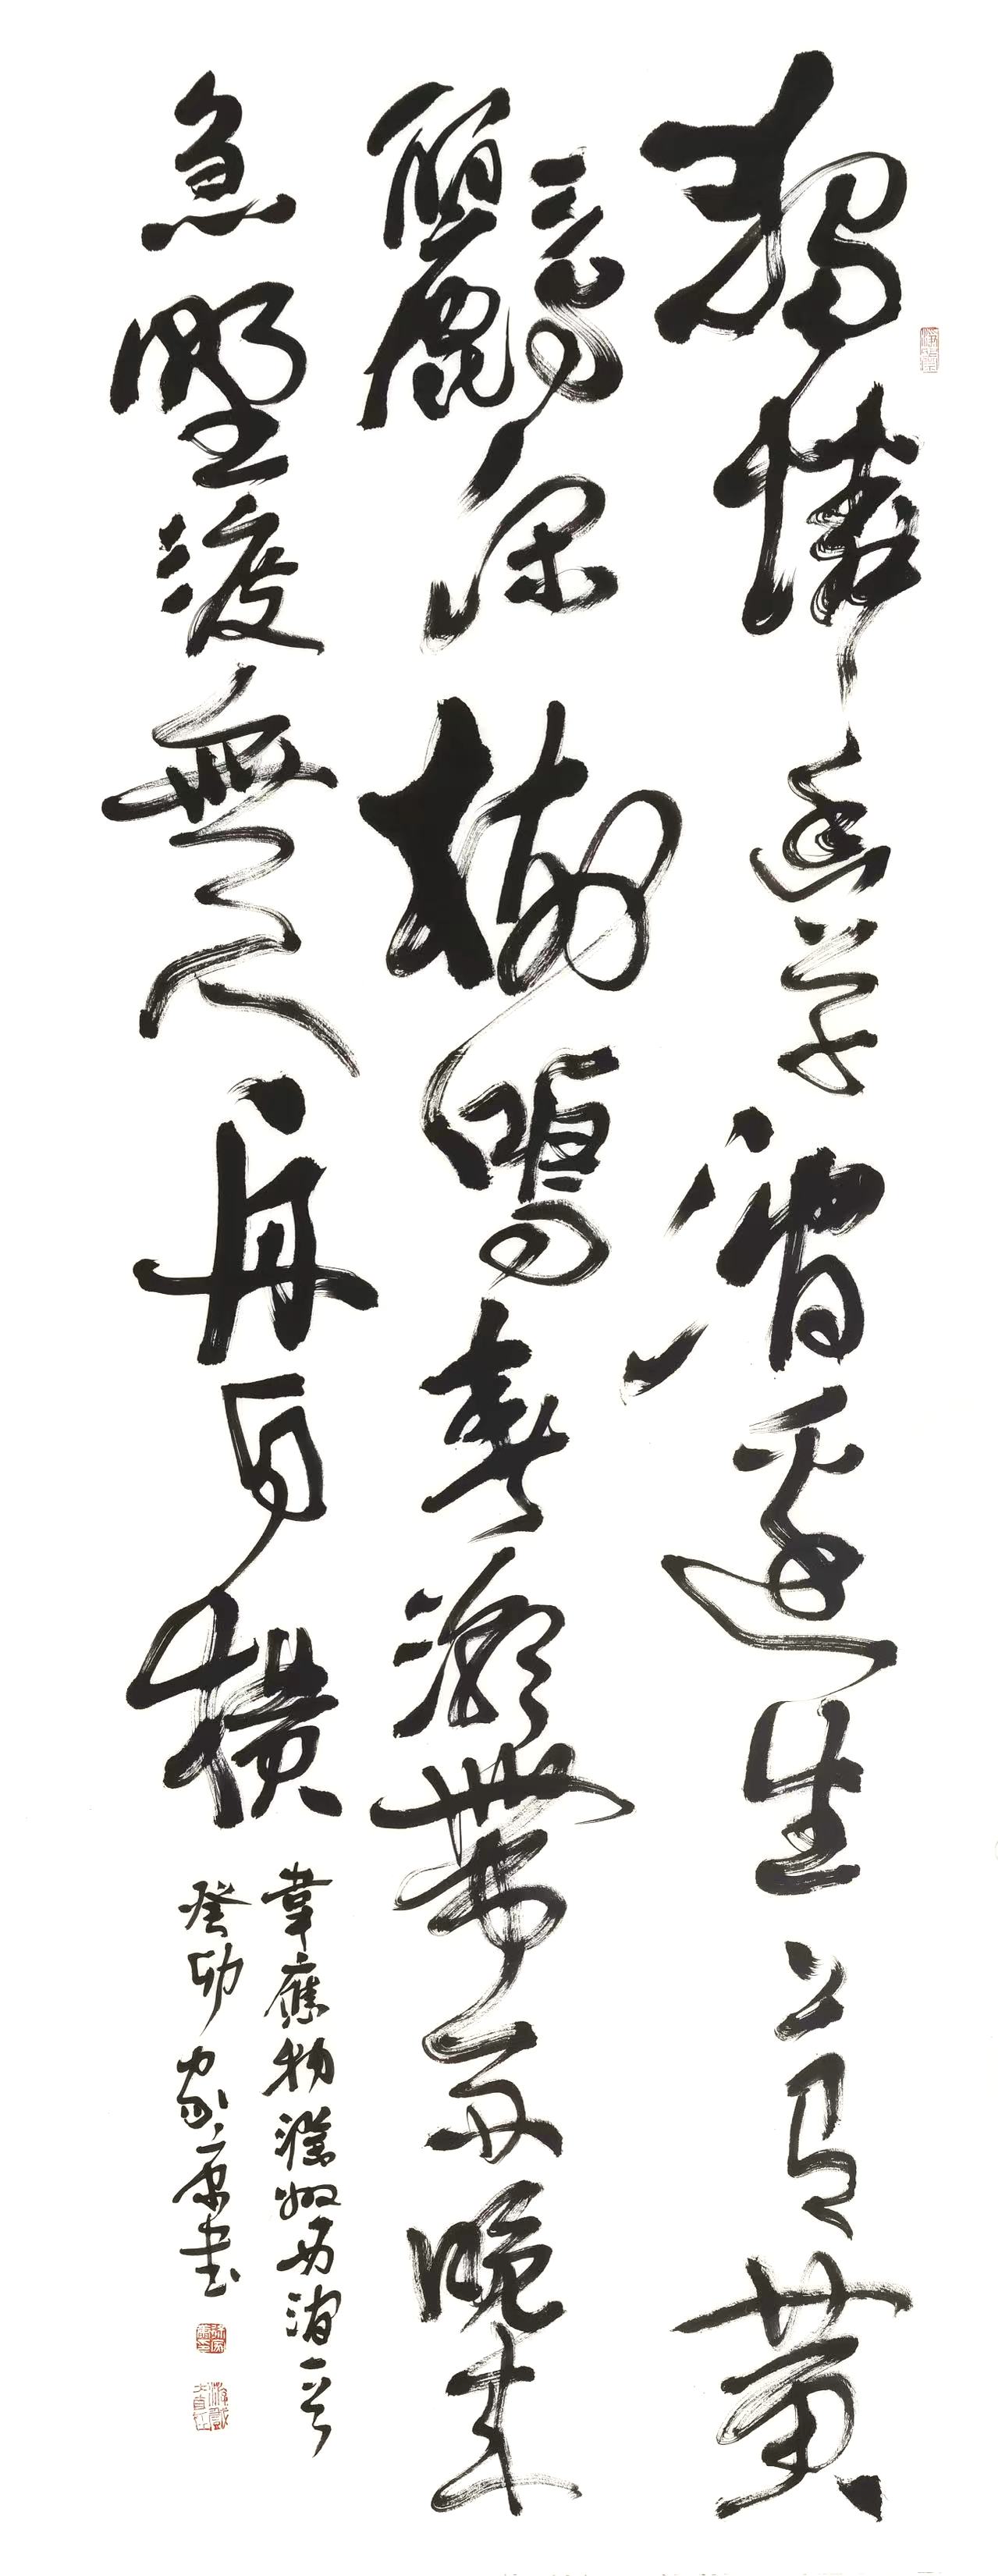 獨憐幽草澗邊生上有黃
鸝深樹鳴春潮帶雨晚來
急野渡無人舟自橫
韋應物滁州西澗一首
癸卯家康書